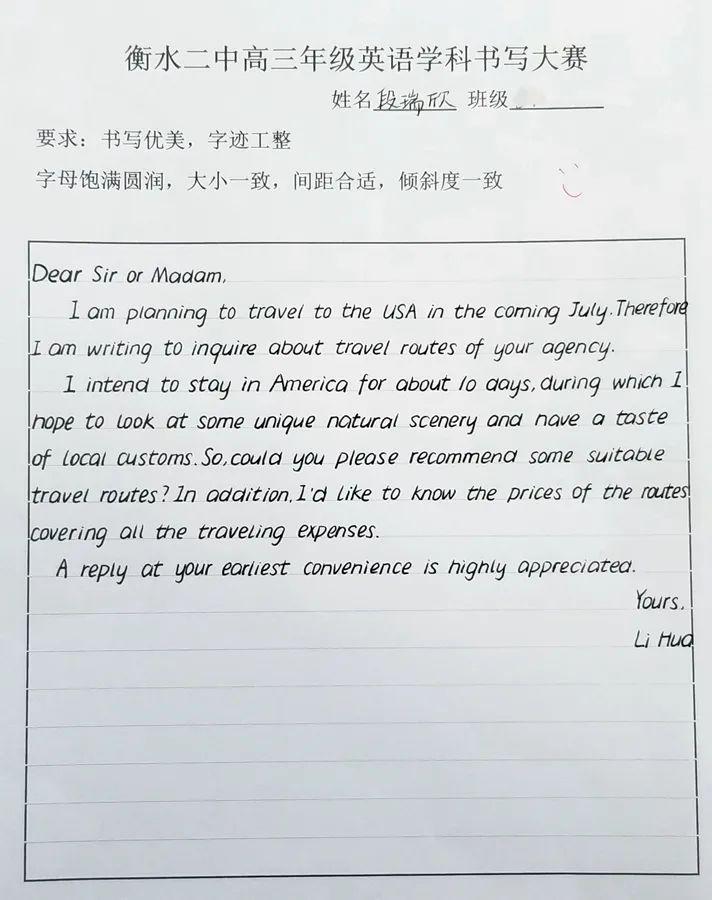 衡水二中高三年级英语学科书写大赛
姓名段瑞欣 班级
要求：书写优美，字迹工整
字母饱满圆润，大小一致，间距合适，倾斜度一致
Dear Sir or Madam,
I am planning to travel to the USA in the coming July. Therefore
I am writing to inquire about travel routes of your agency.
I intend to stay in America for about 10 days, during which I
hope to look at some unique natural scenery and have a taste
of local customs. So, could you please recommend some suitable
travel routes? In addition, I'd like to know the prices of the routes
covering all the traveling expenses.
A reply at your earliest convenience is highly appreciated.
Yours,
Li Hua